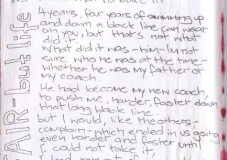 4 years, four years of swimming up
and down a black line can wear
on you, but that's not what
did it.
What did it was – him – I'm not
sure who he was at the time –
whether he was my father or
my coach.
He had become my new coach,
to push me harder, faster down
that long black line
but I would, like the others –
complain – which ended in us going
even harder and faster until
I could not take it,
AIR – but life